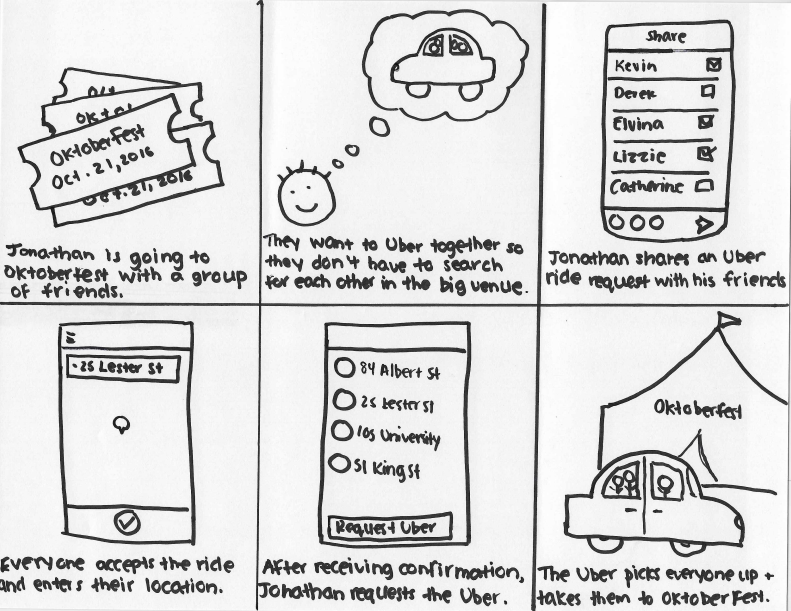 Oct
Oktob
Oktoberfest
Oct. 21, 2016
Oct. 21, 2016
Jonathan is going to
Oktoberfest with a group
of friends.
They want to Uber together so
they don't have to search
for each other in the big venue.
Share
Kevin
Derek
Elvina
Lizzie
Catherine
Jonathan shares an Uber
ride request with his friends
25 Lester St
Everyone accepts the ride
and enters their location.
84 Albert St
25 Lester St
105 University
51 King St
Request Uber
After receiving confirmation,
Jonathan requests the Uber.
Oktoberfest
The Uber picks everyone up +
takes them to Oktoberfest.